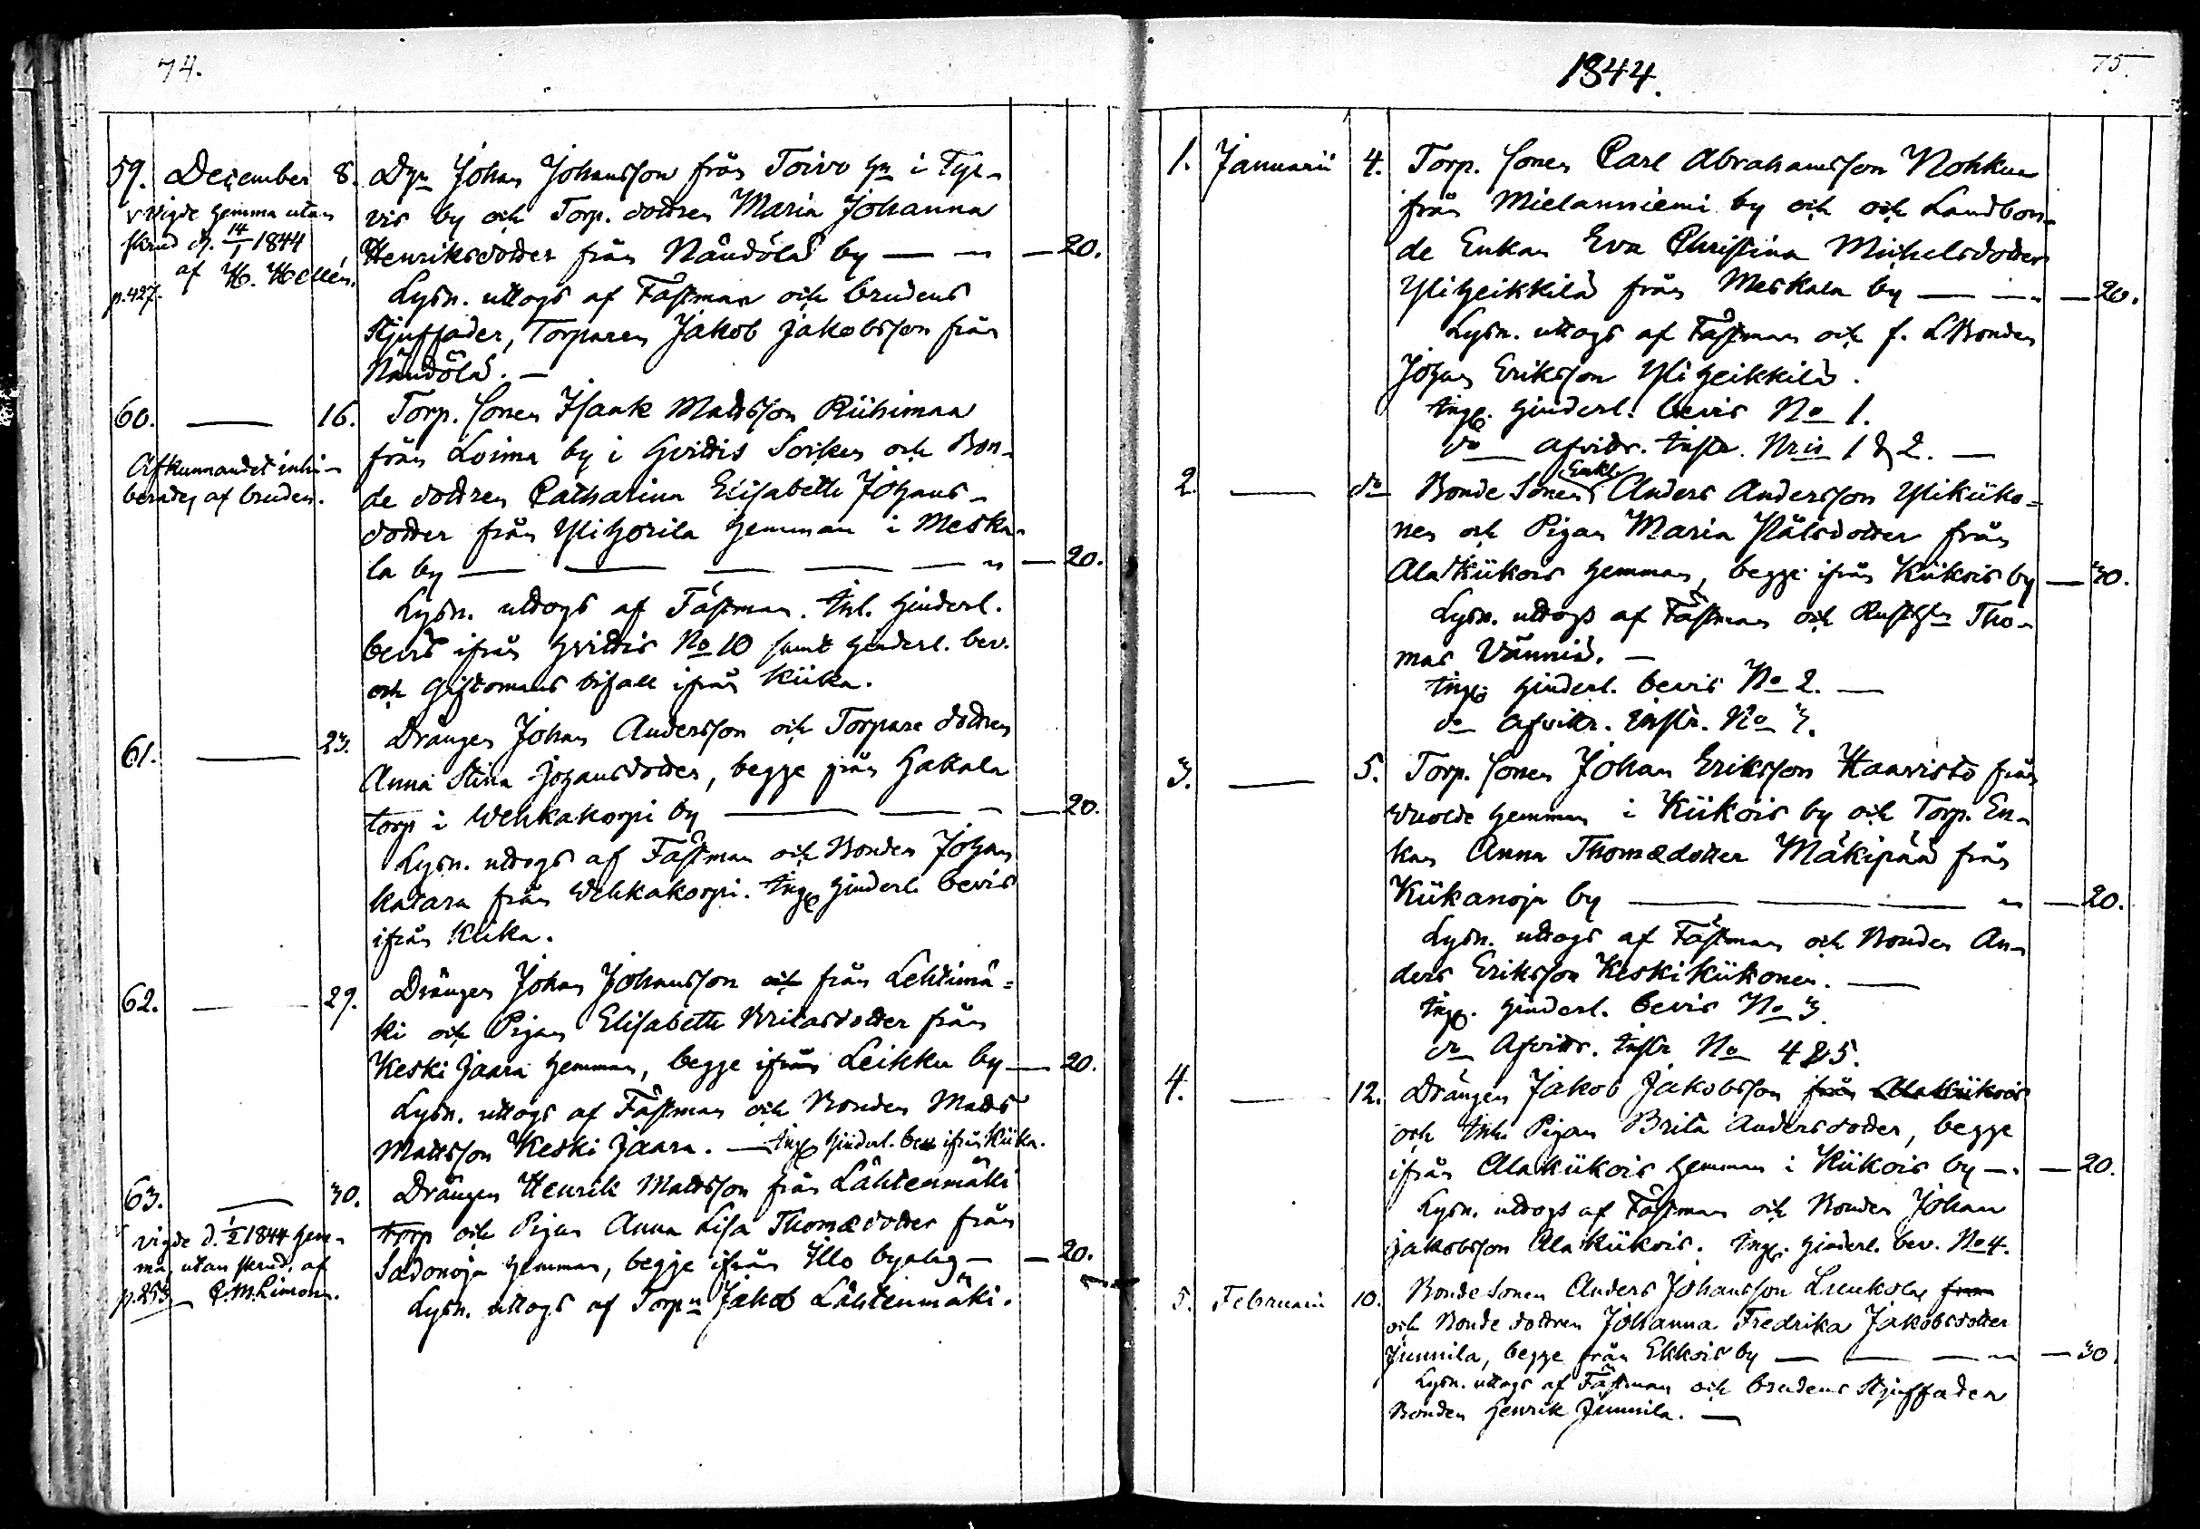 74.
59. December 8. Dgn Johan Johansson från Toivo hn i Tyr-
vis by och Torp. dottren Maria Johanna
Henriksdotter från Nändölä by — — 20.
Lysn. uttogs af Fästman och brudens
Stjuffader, Torparen Jakob Jakobsson från
Nändölä. —
v. vigde hemma utan
skrud d. 14/1 1844
af H. Hellén.
p. 427.
60. — 16. Torp. sonen Isaak Mattsson Riihimaa
från Loima by i Hvittis Socken och Bon-
de dottren Catharina Elisabeth Johans-
dotter från Ylihorila hemman i Meska-
la by — — — — — 20.
Lysn. uttogs af Fästman. Inl. hinderl.
bevis ifrån Hvittis No 10 samt hinderl. bev.
och Giftomans bifall ifrån Kiika.
Afkunnandet inhi-
berades af bruden.
61. — 23. Drängen Johan Andersson och Torpare dottren
Anna Stina Johansdotter, begge från Hakala
torp i Wehkakorpi by — — — 20.
Lysn. uttogs af Fästman och Bonden Johan
Katara från Wehkakorpi. Ing. hinderl. bevis
ifrån Kiika.
62. — 29. Drängen Johan Johansson och från Lehtimä-
ki och Pigan Elisabeth Britasdotter från
Keski Jaara hemman, begge ifrån Leikku by — 20.
Lysn. uttogs af Fästman och Bonden Matts
Mattsson Keski Jaara. — Ing. hinderl. bev. ifrån Kiika.
63. — 30. Drängen Henrik Mattsson från Lähteenmäki
torp och Pigan Anna Lisa Thomædotter från
Sadonoja hemman, begge ifrån Illo byalag — — 20.
Lysn. uttogs af Torpn Jakob Lähteenmäki.
vigde d. 1/2 1844 hem-
ma, utan skrud, af
p. 253. C. M. Limon.
1844.
75.
1. Januarii 4. Torp. sonen Carl Abrahamsson Nohkua
från Mielanniemi by och och Landbon-
de Enkan Eva Christina Michelsdotter
Yliheikkilä från Meskala by — — 20.
Lysn. uttogs af Fästman och f. LBonden
Johan Eriksson Yliheikkilä.
Ing. hinderl. bevis No 1.
do afvittr. Instr. Nris 1 & 2. —
2. — do Bonde Sonen Enkl. Anders Andersson Ylikiiko-
nen och Pigan Maria Pålsdotter från
AlaKiikois hemman, begge ifrån Kiikois by — 30.
Lysn. uttogs af Fästman och Rusthn Tho-
mas Vännilä. —
Ing. hinderl. bevis No 2. —
do afvittr. Instr. No 3.
3. — 5. Torp. sonen Johan Eriksson Haavisto från
Wuolde hemman i Kiikois by och Torp. En-
kan Anna Thomædotter Mäkipää från
Kiikanoja by — — — 20.
Lysn. uttogs af Fästman och Bonden An-
ders Eriksson Keskikiikonen. —
Ing. hinderl. bevis No 3.
do Afvittr. Instr No 4 & 5.
4. — 12. Drängen Jakob Jakobsson från AlaKiikois
och Inh. Pigan Brita Andersdotter, begge
ifrån Alakiikois hemman i Kiikois by — — 20.
Lysn. uttogs af Fästman och Bonden Johan
Jakobsson Ala Kiikois. Ing. hinderl. bev. No 4.
5. Februarii 10. Bonde Sonen Anders Johansson Leukola från
och Bonde dottren Johanna Fredrika Jakobsdotter
Junnila, begge från Ekkois by — — — 30
Lysn. uttogs af Fästman och brudens Stjuffader
Bonden Henrik Junnila. —